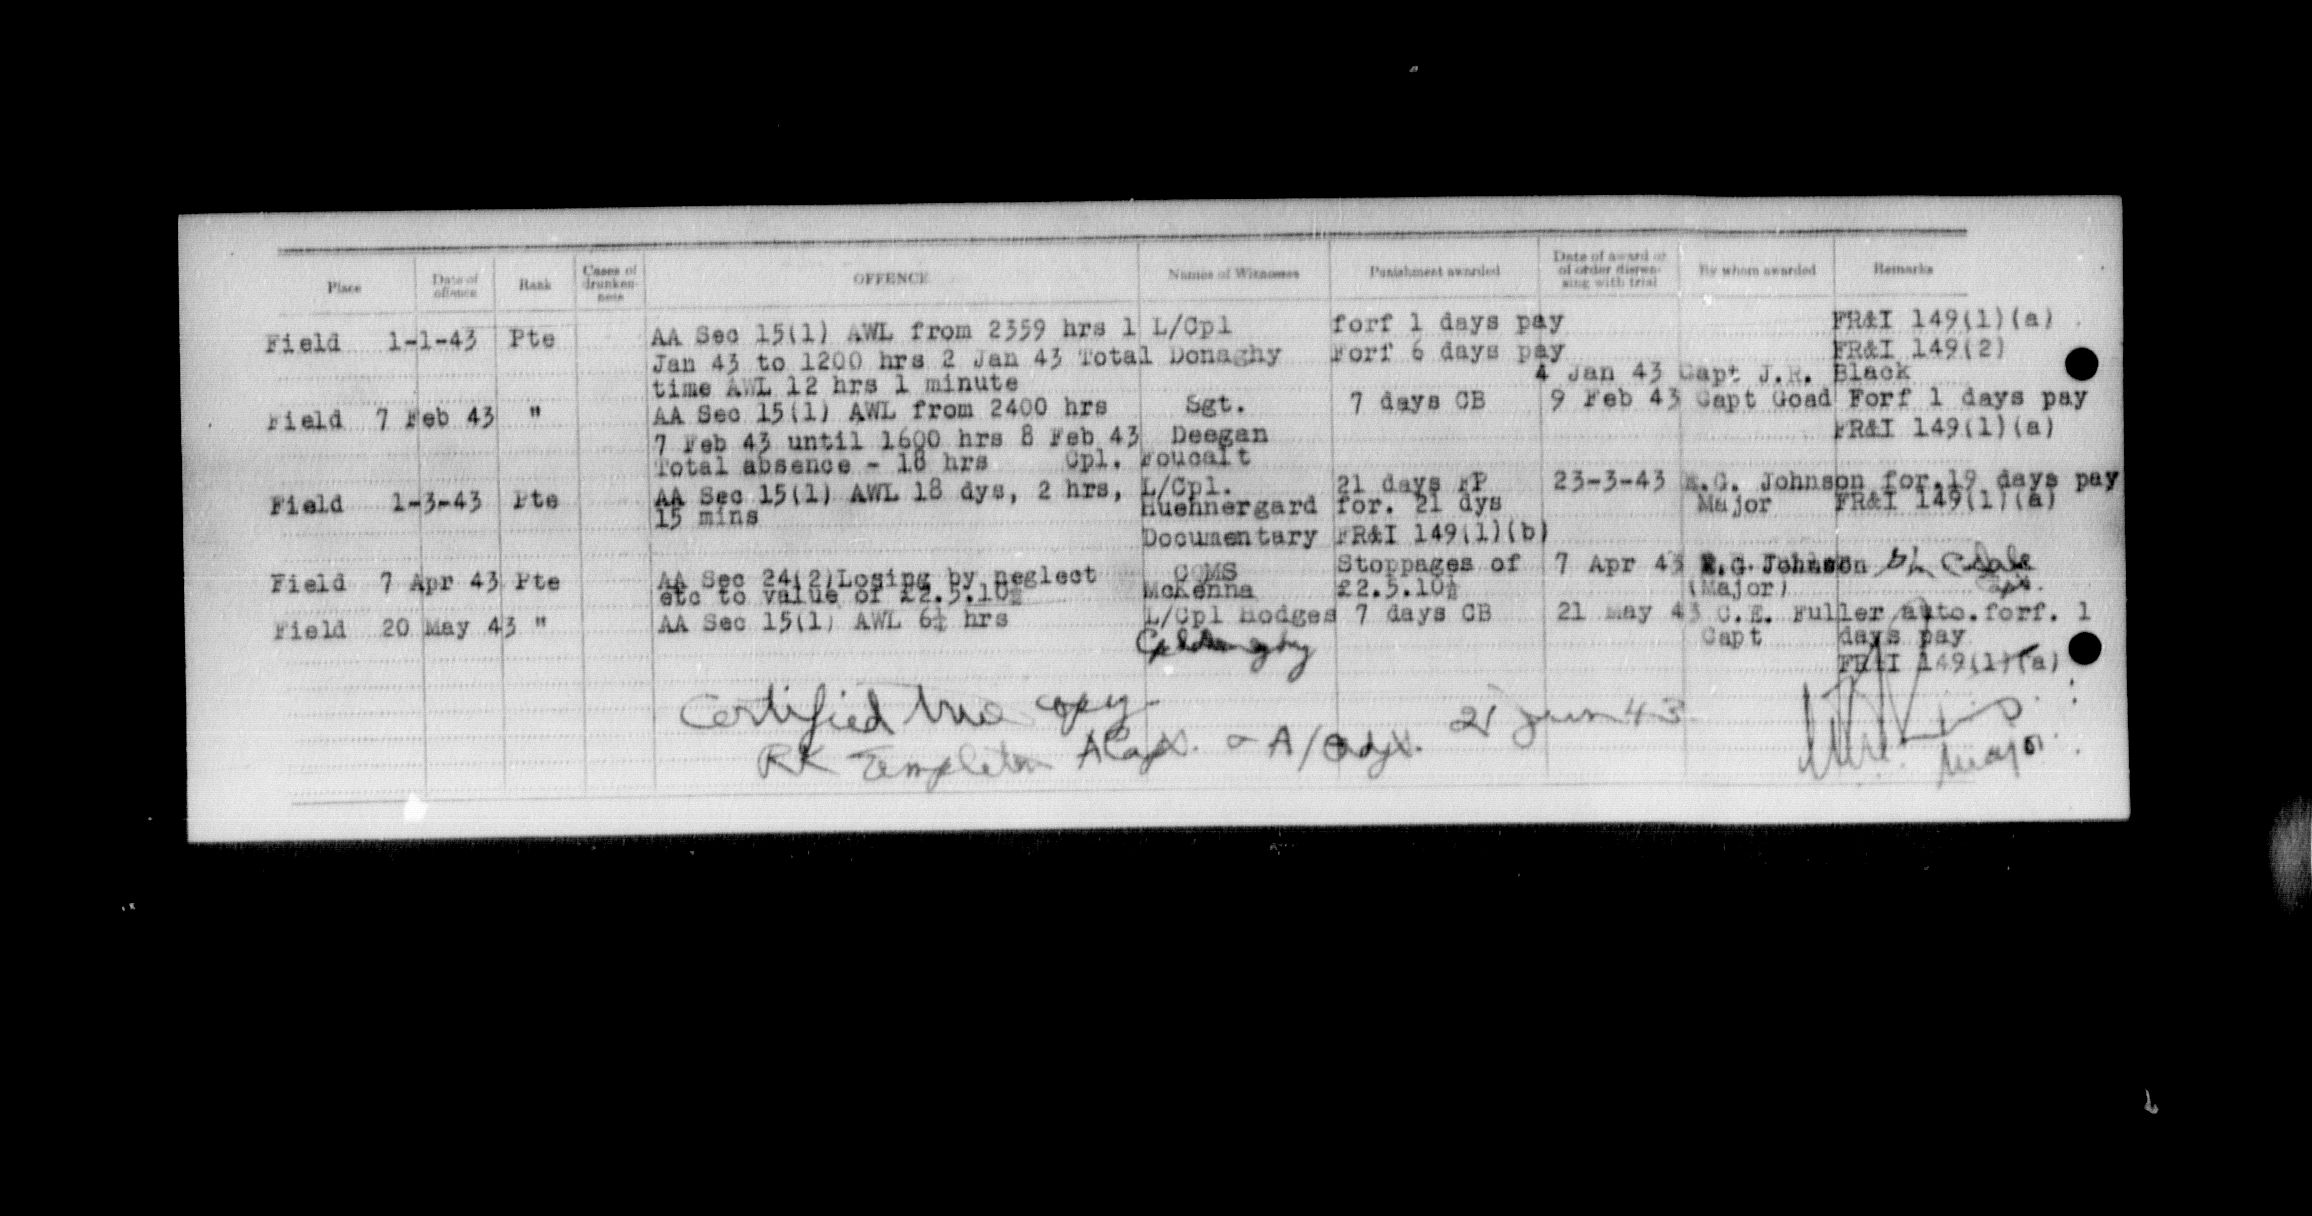 Place Date of offence Rank Cases of drunkenness OFFENCE Names of Witnesses Punishment awarded Date of award or of order dispensing with trial By whom awarded Remarks
Field 1-1-43 Pte AA Sec 15(1) AWL from 2359 hrs 1 L/Cpl forf 1 days pay FR&I 149(1)(a)
Jan 43 to 1200 hrs 2 Jan 43 Total Donaghy Forf 6 days pay FR&I 149(2)
time AWL 12 hrs 1 minute 4 Jan 43 Capt J.R. Black
Field 7 Feb 43 " AA Sec 15(1) AWL from 2400 hrs Sgt. 7 days CB 9 Feb 43 Capt Goad Forf 1 days pay
7 Feb 43 until 1600 hrs 8 Feb 43 Deegan FR&I 149(1)(a)
Total absence - 16 hrs Cpl. Foucalt
Field 1-3-43 Pte AA Sec 15(1) AWL 18 dys, 2 hrs, L/Cpl. 21 days FP 23-3-43 E.G. Johnson for.19 days pay
15 mins Huehnergard for. 21 dys Major FR&I 149(1)(a)
Documentary FR&I 149(1)(b)
Field 7 Apr 43 Pte AA Sec 24(2)Losing by neglect CQMS Stoppages of 7 Apr 43 E.G. Johnson
etc to value of £2.5.10½ McKenna £2.5.10½ (Major)
Field 20 May 43 " AA Sec 15(1) AWL 6½ hrs L/Cpl Hodges 7 days CB 21 May 43 C.E. Fuller auto.forf. 1
Capt days pay
FR&I 149(1)(a)
Certified true copy
RK Templeton A/Capt. A/Adjt. 21 Jun 43
Major